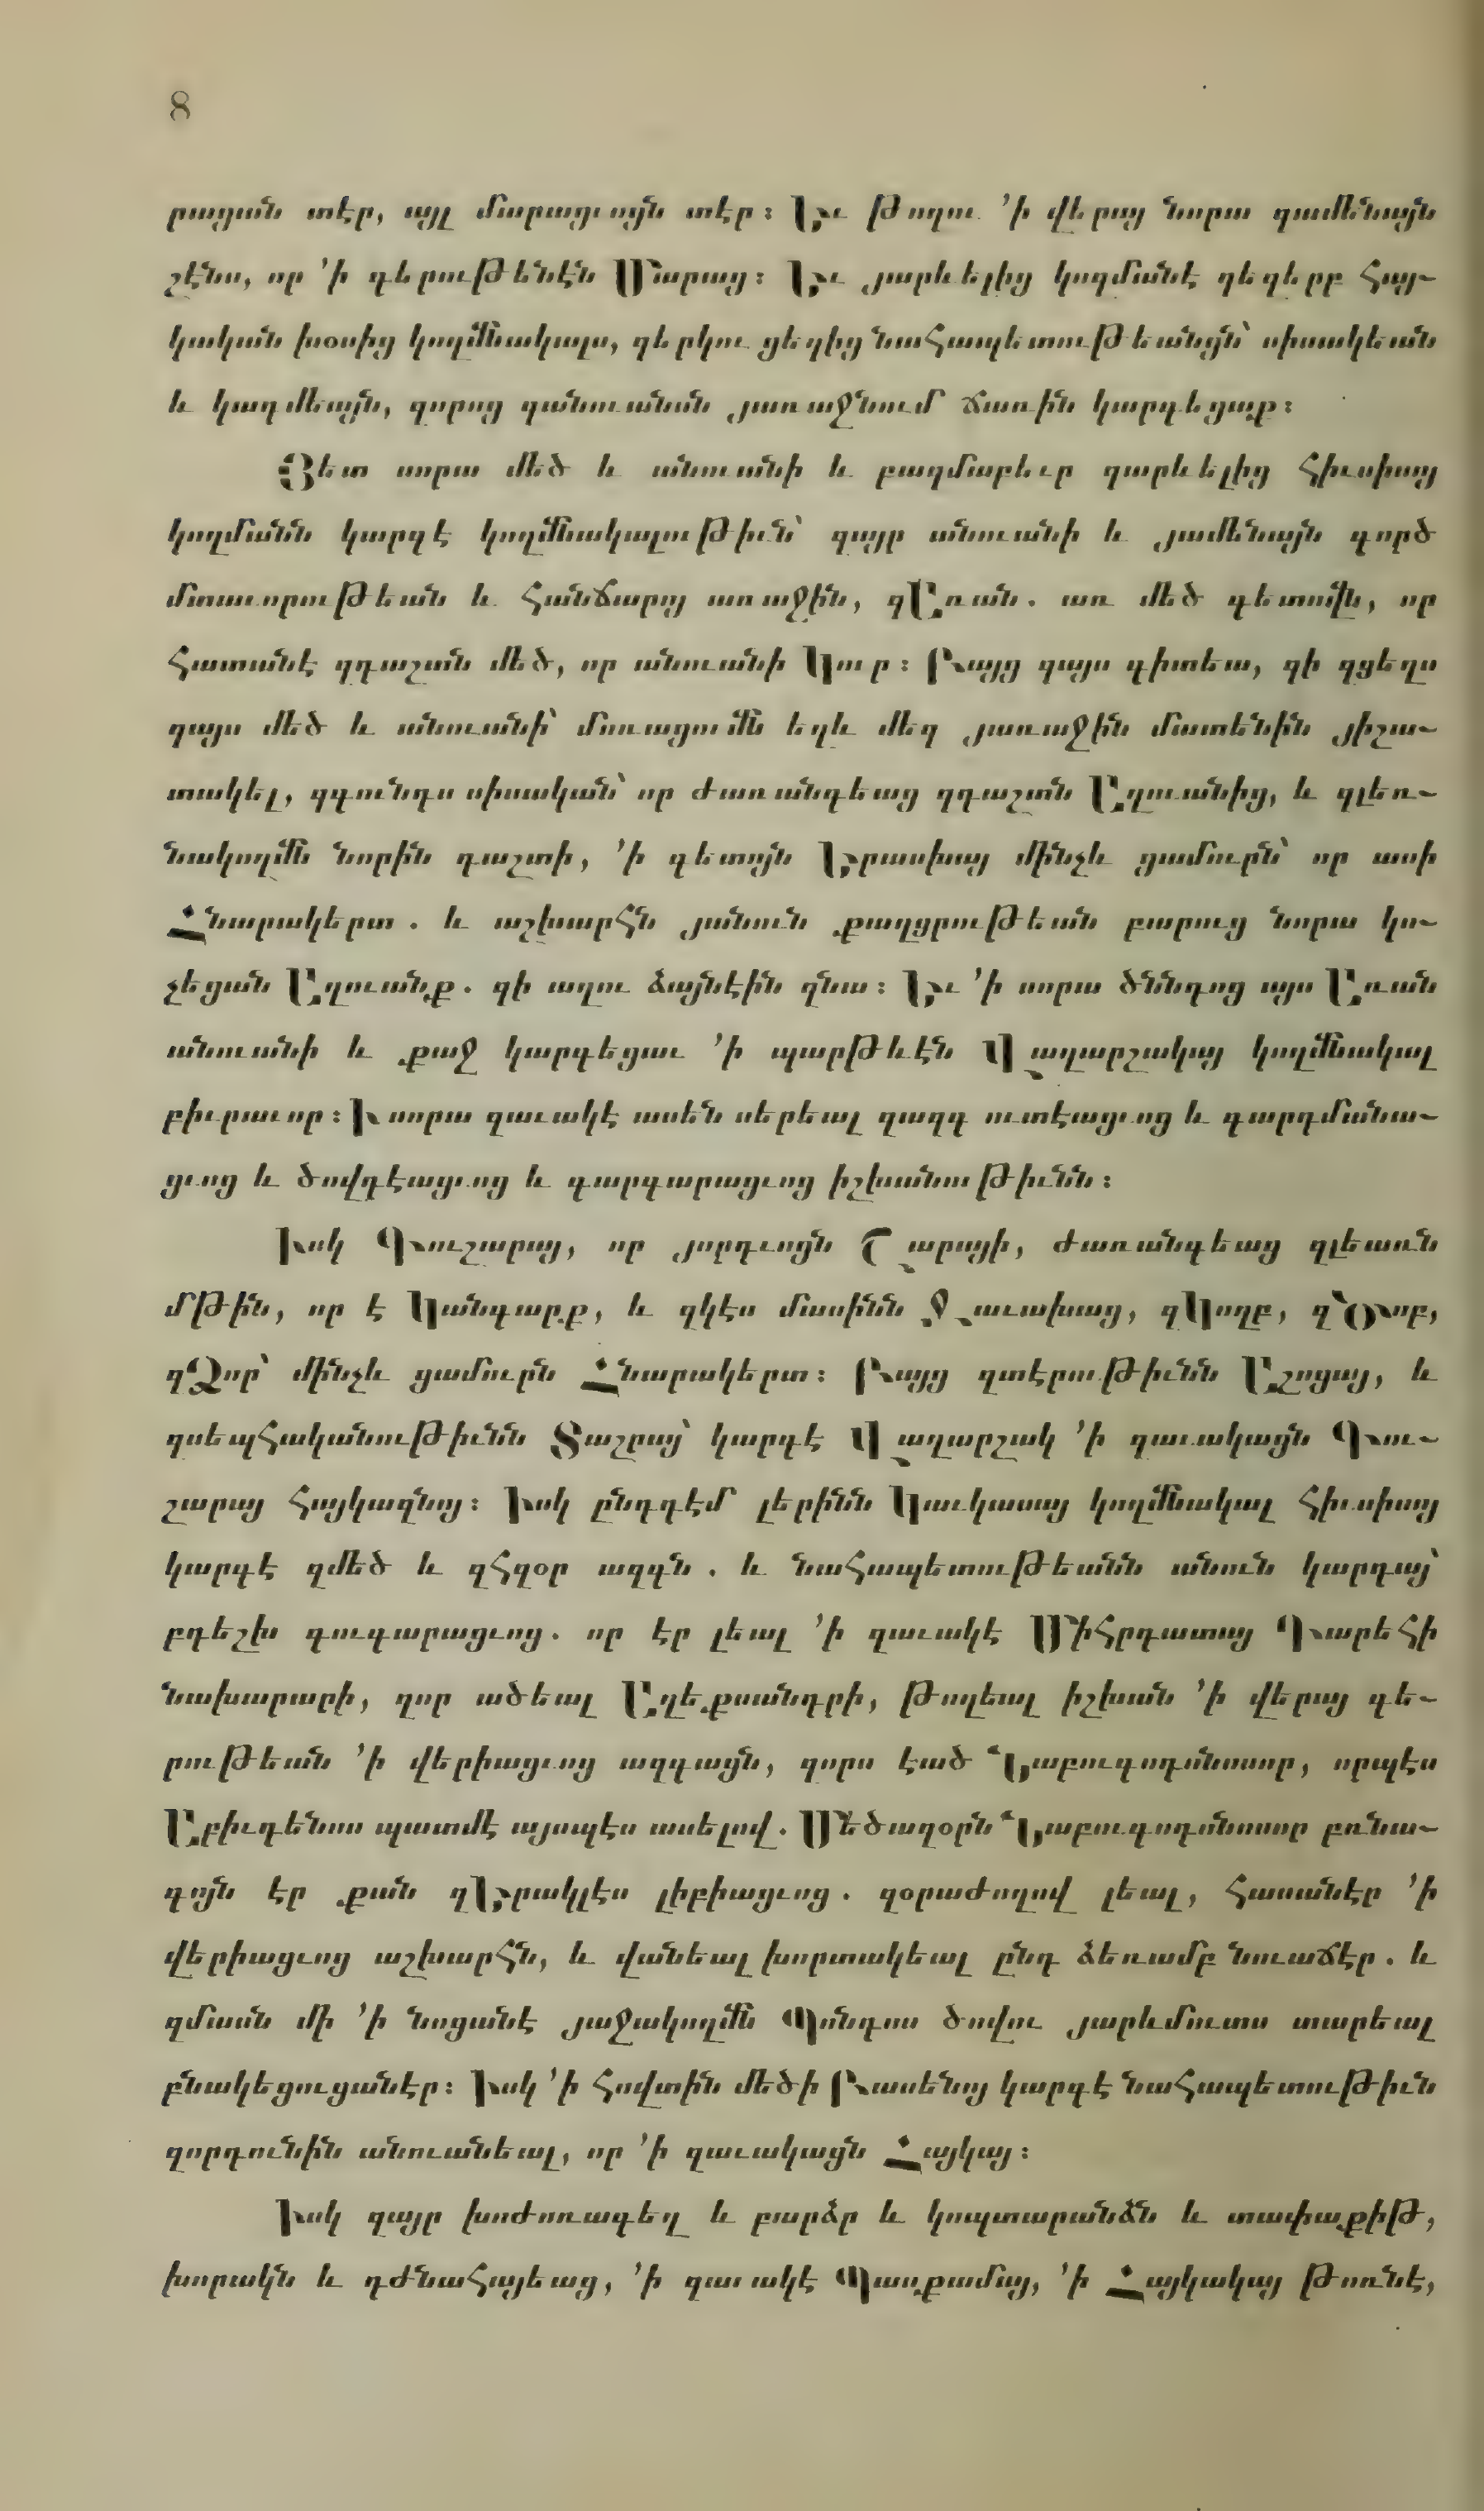 8
րացան տէր, այլ մարացւոյն տէր։ Եւ թողու ՚ի վերայ նորա զամենայն
շէնս, որ ՚ի գերութենէն Մարաց։ Եւ յարևելից կողմանէ զեզերբ հայ֊
կական խօսից կողմնակալս, զերկու ցեղից նահապետութեանցն՝ սիսակեան
և կադմեայն, զորոց զանուանան յառաջնում ճառին կարգեցաք։
Յետ սորա մեծ և անուանի և բազմաբեւր զարևելից հիւսիսոյ
կողմանն կարգէ կողմնակալութիւն՝ զայր անուանի և յամենայն գործ
մտաւորութեան և հանճարոյ առաջին, զԱռան. առ մեծ գետովն, որ
հատանէ զդաշտն մեծ, որ անուանի Կուր։ Բայց զայս գիտեա, զի զցեղս
զայս մեծ և անուանի՝ մոռացումն եղև մեզ յառաջին մատենին յիշա֊
տակել, զգունդս սիսական՝ որ ժառանգեաց զդաշտն Աղուանից, և զլեռ֊
նակողմն նորին դաշտի, ՚ի գետոյն Երասխայ մինչև ցամուրն՝ որ ասի
Հնարակերտ. և աշխարհն յանուն քաղցրութեան բարուց նորա կո֊
չեցան Աղուանք. զի աղու ձայնէին զնա։ Եւ ՚ի սորա ծննդոց այս Առան
անուանի և քաջ կարգեցաւ ՚ի պարթևէն Վաղարշակայ կողմնակալ
բիւրաւոր։ Ի սորա զաւակէ ասեն սերեալ զազգ ուտէացւոց և գարդմանա֊
ցւոց և ծովդէացւոց և գարգարացւոց իշխանութիւնն։
Իսկ Գուշարայ, որ յորդւոցն Շարայի, ժառանգեաց զլեառն
մթին, որ է Կանգարք, և զկէս մասինն Ջաւախաց, զԿողբ, զԾոբ,
զՁոր՝ մինչև ցամուրն Հնարակերտ։ Բայց զտէրութիւնն Աշոցայ, և
զսեպհականութիւնն Տաշրաց՝ կարգէ Վաղարշակ ՚ի զաւակացն Գու֊
շարայ հայկազնոյ։ Իսկ ընդդէմ լերինն Կաւկասայ կողմնակալ հիւսիսոյ
կարգէ զմեծ և զհզօր ազգն. և նահապետութեանն անուն կարդայ՝
բդեշխ գուգարացւոց. որ էր լեալ ՚ի զաւակէ Միհրդատայ Դարեհի
նախարարի, զոր ածեալ Աղեքսանդրի, թողեալ իշխան ՚ի վերայ գե֊
րութեան ՚ի վերիացւոց ազգացն, զորս էած Նաբուգոդոնոսոր, որպէս
Աբիւդենոս պատմէ այսպէս ասելով. Մեծազօրն Նաբուգոդոնոսոր բռնա֊
գոյն էր քան զԵրակլէս լիբիացւոց. զօրաժողով լեալ, հասանէր ՚ի
վերիացւոց աշխարհն, և վանեալ խորտակեալ ընդ ձեռամբ նուաճէր. և
զմասն մի ՚ի նոցանէ յաջակողմն Պոնդոս ծովու յարևմուտս տարեալ
բնակեցուցանէր։ Իսկ ՚ի հովտին մեծի Բասենոյ կարգէ նահապետութիւն
զորդունին անուանեալ, որ ՚ի զաւակացն Հայկայ։
Իսկ զայր խոժոռագեղ և բարձր և կոպտարանձն և տափաքիթ,
խորակն և դժնահայեաց, ՚ի զաւակէ Պասքամայ, ՚ի Հայկակայ թոռնէ,